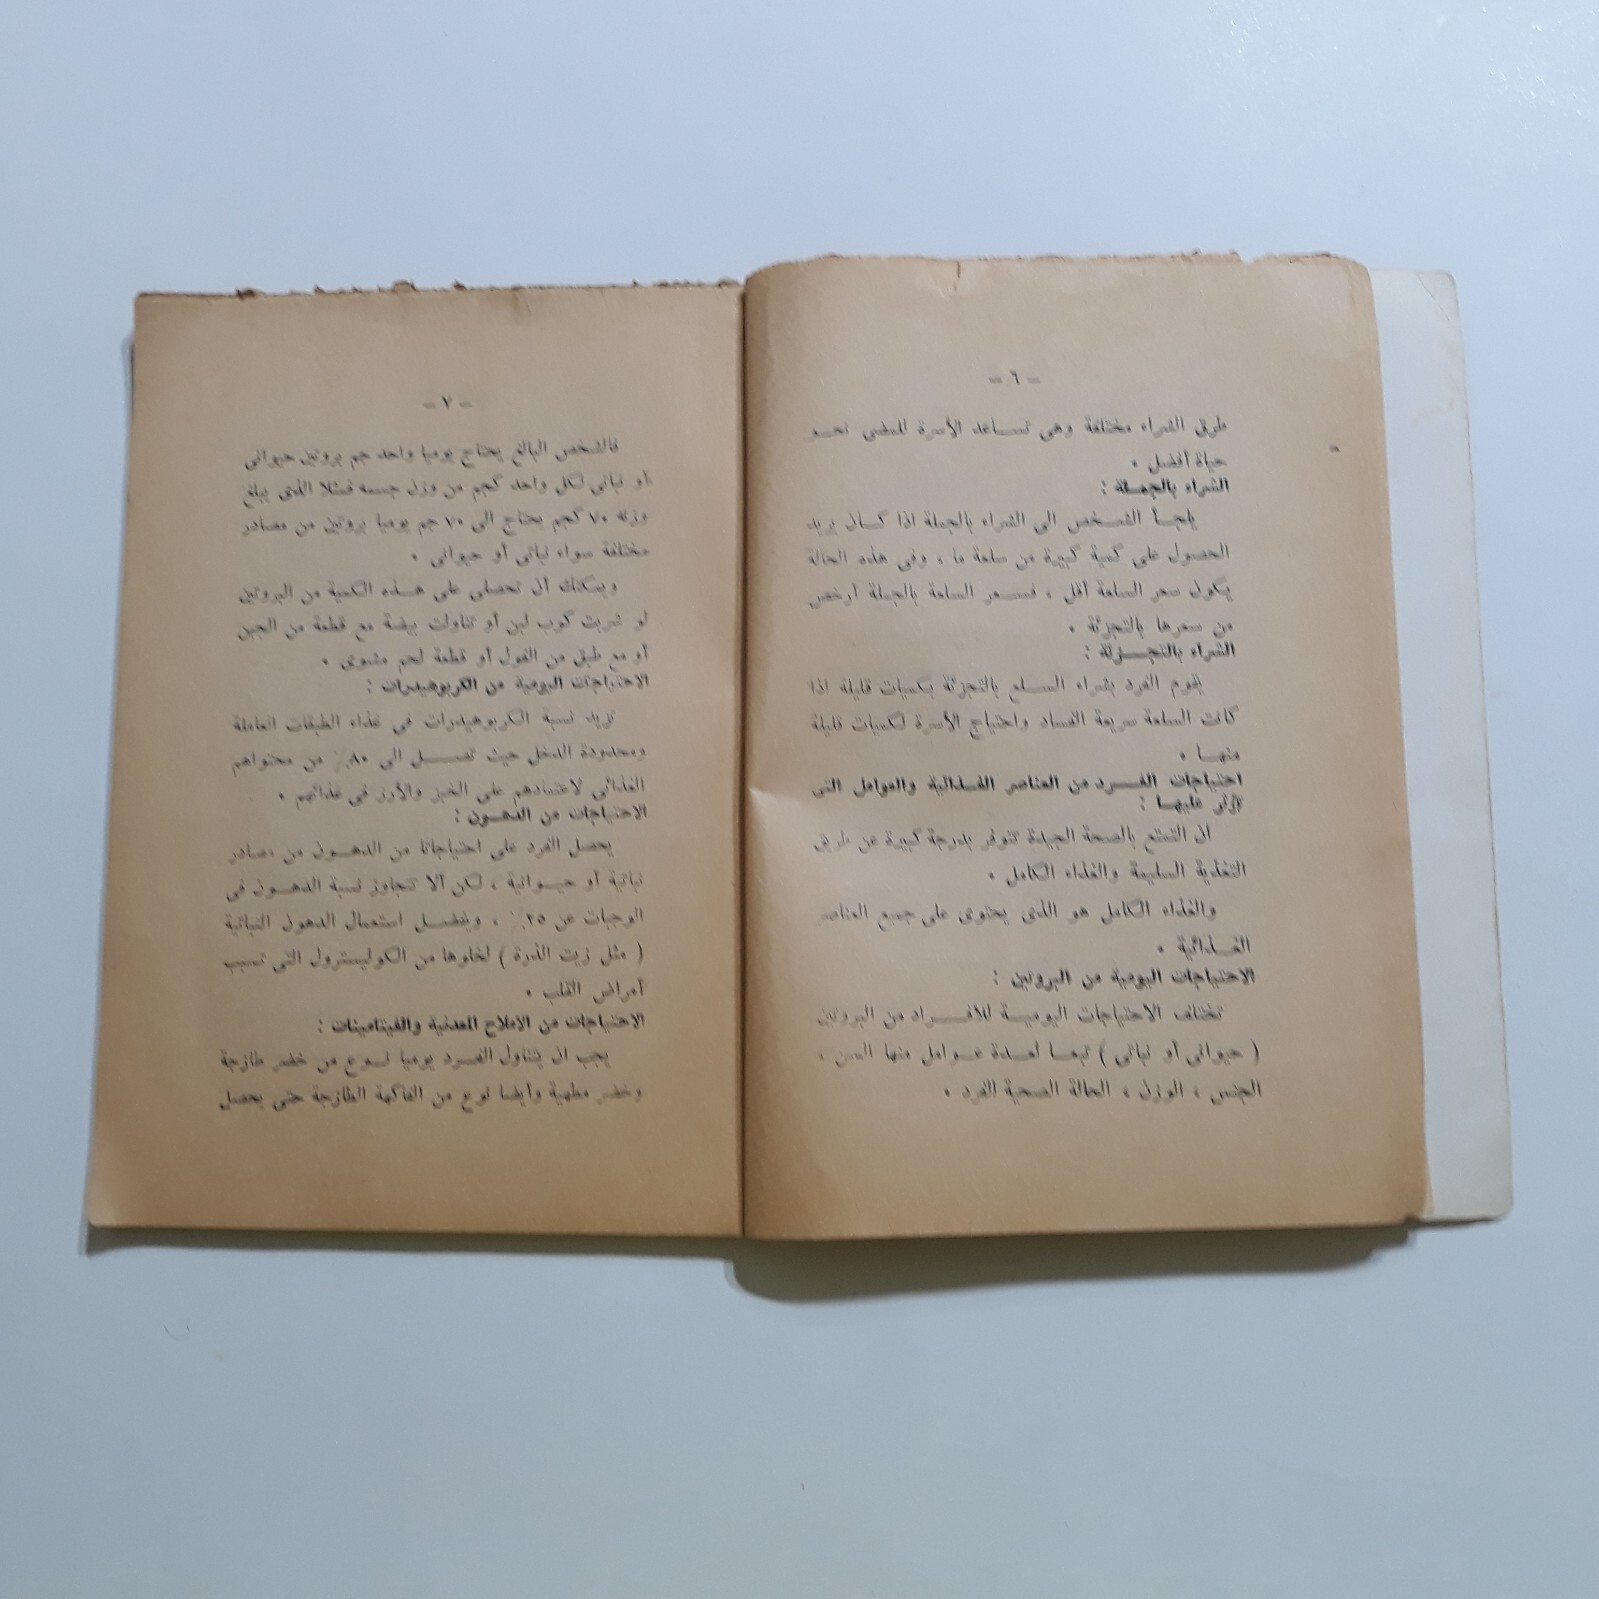 – ٦ –
طرق الشراء مختلفة وهى تساعد الأسرة للمضى نحو
حياة أفضل .
الشراء بالجملة :
يلجأ الشخص الى الشراء بالجملة اذا كان يريد
الحصول على كمية كبيرة من سلعة ما ، وفى هذه الحالة
يكون سعر السلعة أقل ، فسعر السلعة بالجملة أرخص
من سعرها بالتجزئة .
الشراء بالتجزئة :
يقوم الفرد بشراء السلع بالتجزئة بكميات قليلة اذا
كانت السلعة سريعة الفساد واحتياج الأسرة لكميات قليلة
منها .
احتياجات الفرد من العناصر الغذائية والعوامل التى
تؤثر عليها :
ان التمتع بالصحة الجيدة تتوفر بدرجة كبيرة عن طريق
التغذية السليمة والغذاء الكامل .
والغذاء الكامل هو الذى يحتوى على جميع العناصر
الغذائية .
الاحتياجات اليومية من البروتين :
تختلف الاحتياجات اليومية للأفراد من البروتين
( حيوانى أو نباتى ) تبعا لعدة عوامل منها السن ،
الجنس ، الوزن ، الحالة الصحية للفرد .
– ٧ –
فالشخص البالغ يحتاج يوميا واحد جم بروتين حيوانى
أو نباتى لكل واحد كجم من وزن جسمه فمثلا الذى يبلغ
وزنه ٧٠ كجم يحتاج الى ٧٠ جم يوميا بروتين من مصادر
مختلفة سواء نباتى أو حيوانى .
ويمكنك أن تحصلى على هذه الكمية من البروتين
لو شربت كوب لبن أو تناولت بيضة مع قطعة من الجبن
أو مع طبق من الفول أو قطعة لحم مشوى .
الاحتياجات اليومية من الكربوهيدرات :
تزيد نسبة الكربوهيدرات فى غذاء الطبقات العاملة
ومحدودة الدخل حيث تصل الى ٨٠٪ من محتواهم
الغذائى لاعتمادهم على الخبز والأرز فى غذائهم .
الاحتياجات من الدهون :
يحصل الفرد على احتياجاتا من الدهون من مصادر
نباتية أو حيوانية ، لكن ألا تتجاوز نسبة الدهون فى
الوجبات عن ٢٥٪ ، ويفضل استعمال الدهون النباتية
( مثل زيت الذرة ) لخلوها من الكوليسترول التى تسبب
أمراض القلب .
الاحتياجات من الاملاح المعدنية والفيتامينات :
يجب ان يتناول الفرد يوميا نوع من خضر طازجة
وخضر مطهية وأيضا نوع من الفاكهة الطازجة حتى يحصل